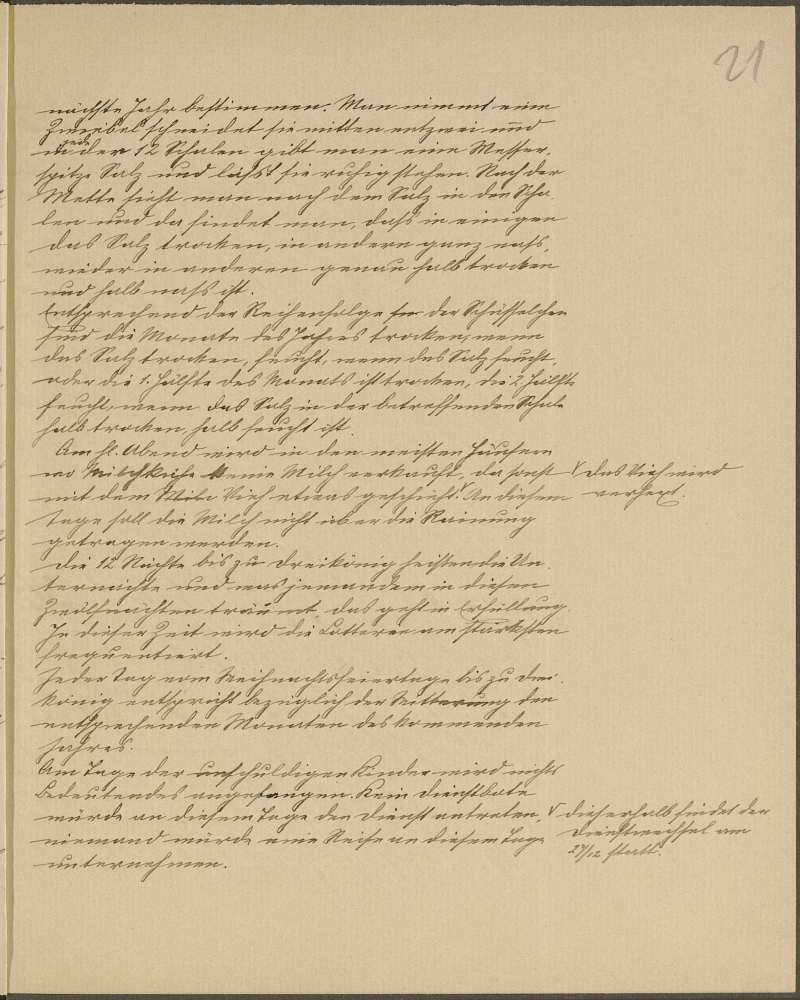 21
nächste Jahr bestimmen. Man nimmt eine
Zwiebel schneidet sie mitten entzwei und
in jede der 12 Schalen gibt man eine Messer-
spitze Salz und läßt sie ruhig stehen. Nach der
Mette sieht man nach dem Salz in den Scha-
len und da findet man, daß in einigen
das Salz trocken, in andern ganz naß,
wieder in anderen genau halb trocken
und halb naß ist.
Entsprechend der Reihenfolge der Schüsselchen
sind die Monate des Jahres trocken, wenn
das Salz trocken, feucht, wenn das Salz feucht,
oder die 1. Hälfte des Monats ist trocken, die 2. Hälfte
feucht, wenn das Salz in der betreffenden Schale
halb trocken, halb feucht ist.
Am hl. Abend wird in den meisten Häusern
wo Milchkühe keine Milch verkauft, da sonst
mit dem Vieh etwas geschieht. √ An diesem
Tage soll die Milch nicht über die Rainung
getragen werden.
√ das Vieh wird
verhext.
Die 12 Nächte bis zu Dreikönig heißen die Un-
ternächte und was jemandem in diesen
Zwölfnächten träumt, das geht in Erfüllung.
In dieser Zeit wird die Lotterie am stärksten
frequentiert.
Jeder Tag vom Weihnachtsfeiertage bis zu Drei-
könig entspricht bezüglich der Witterung den
entsprechenden Monaten des kommenden
Jahres.
Am Tage der unschuldigen Kinder wird nichts
Bedeutendes angefangen. Kein Dienstbote
würde an diesem Tage den Dienst antreten, √
niemand würde eine Reise an diesem Tage
unternehmen.
√ dieserhalb findet der
Dienstwechsel am
27/12 statt.